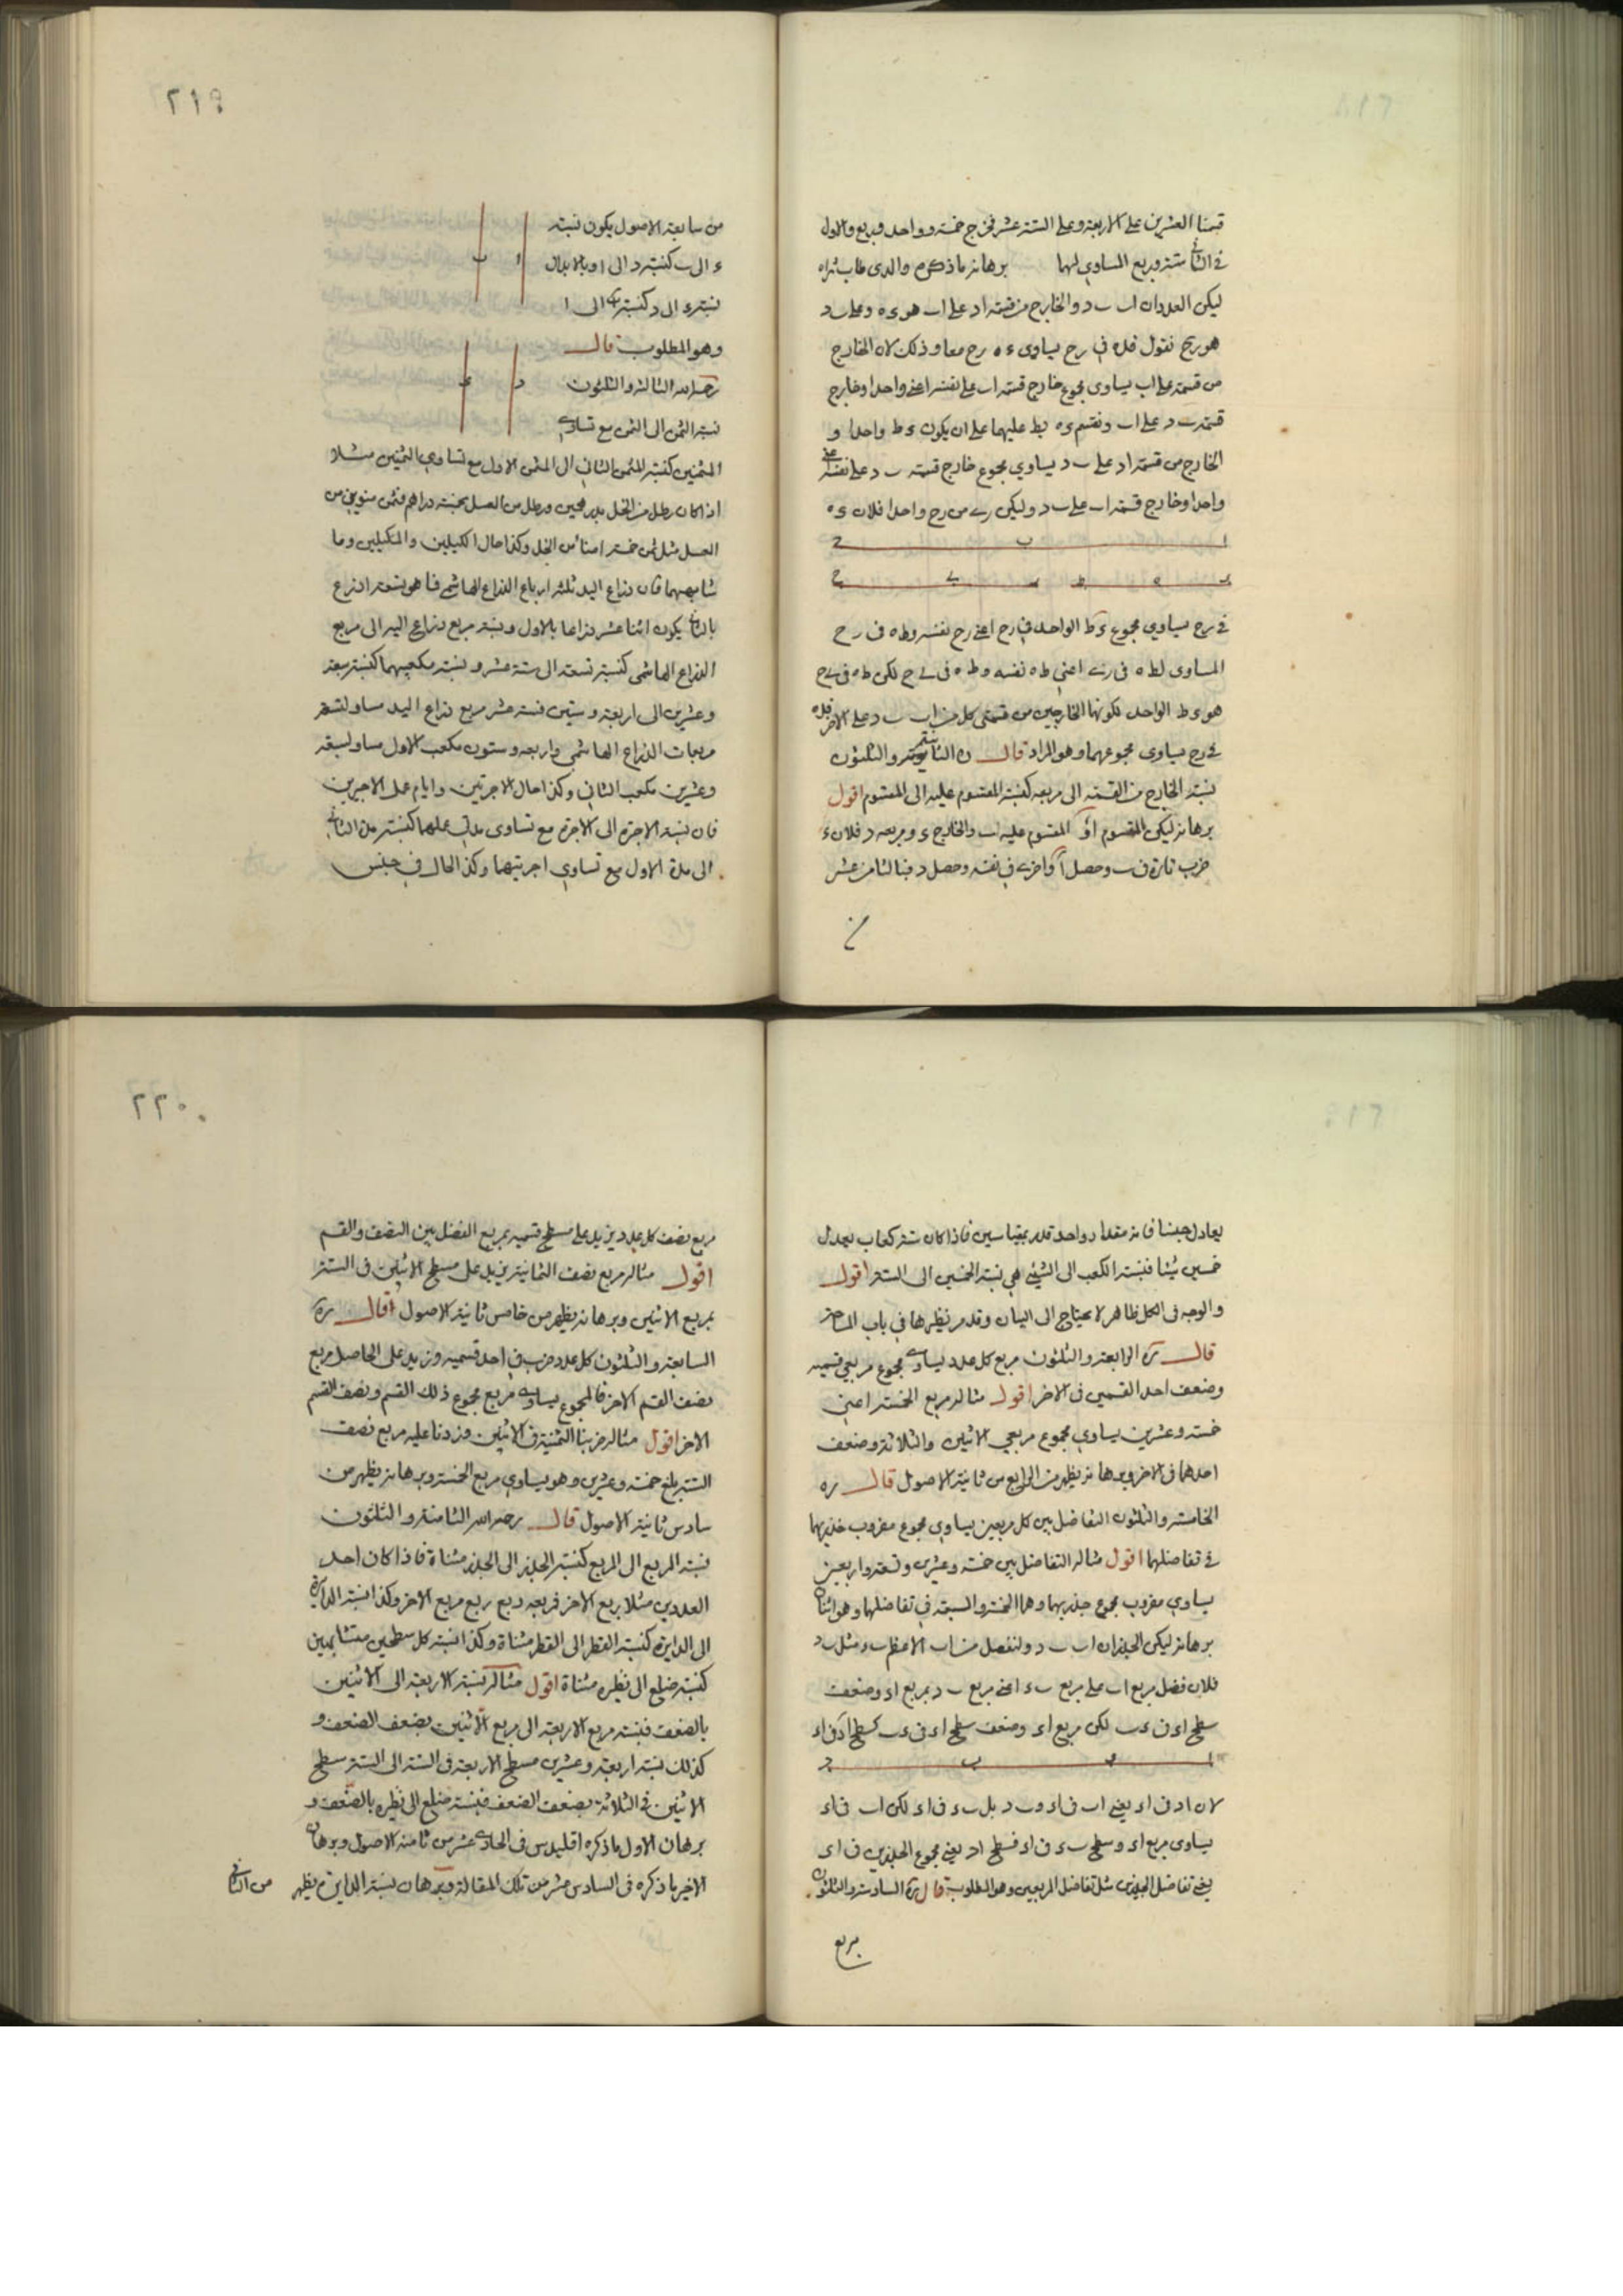 قسمنا العشرين على الاربعة وعلى الستة عشر فخرج خمسة وواحد وربع والاول
فى الثانى ستة وربع المساوى لهما برهانه ما ذكره والدى طاب ثراه
ليكن العددان اب ب د والخارج من قسمة اد على اب هو ء ه وعلى ب د
هو رح نقول فاه فى رح يساوى ء ه رح معا وذلك لان الخارج
من قسمة على اب يساوى مجموع خارج قسمة اب على نفسه اعنى واحدا وخارج
قسمة ب د على اب ونقسم ء ه بط عليهما على ان يكون ء ط واحدا و
الخارج من قسمة اد على ب د يساوي مجموع خارج قسمة ب د على نفسه اعنى
واحدا وخارج قسمة اب على ب د وليكن رى من رح واحدا فلان ء ه
ا ب د
ء ه ط ر ى ح
فى رح يساوي مجموع ء ط الواحد فى رح اعنى رح نفسه وط ه فى رح
المساوى لط ه فى رى اعنى ط ه نفسه وط ه فى ى ح لكن ط ه فى ى ح
هو ء ط الواحد لكونهما الخارجين من قسمتى كل من اب ب د على الاخر فء ه
فى رح يساوى مجموعهما وهو المراد قال ره الثانية والثلثون
نسبة الخارج من القسمة الى مربعه كنسبة المقسوم عليه الى المقسوم اقول
برهانه ليكن المقسوم ا و المقسوم عليه ب والخارج ء ومربعه د فلان ء
ضرب تارة فى ب وحصل ا واخرى فى نفسه وحصل د فبالثامن عشر
من
٢١٩
من سابعة الاصول يكون نسبة
ء الى ب كنسبة د الى ا وبالابدال
نسبة ء الى د كنسبة ب الى ا
ا ب
وهو المطلوب قال
رحمه الله الثالثة والثلثون
د ء
نسبة الثمن الى الثمن مع تساوى
المثمنين كنسبة المثمن الثانى الى المثمن الاول مع تساوي الثمنين مثلا
اذا كان رطل من الخل بدرهمين ورطل من العسل بخمسة دراهم فثمن منوين من
العسل مثل ثمن خمسة امناء من الخل وكذا حال الكيلين والمكيلين وما
شابههما فان ذراع اليد ثلثة ارباع الذراع الهاشمى فما هو تسعة اذرع
بالثانى يكون اثنا عشر ذراعا بالاول ونسبة مربع ذراع اليد الى مربع
الذراع الهاشمى كنسبة تسعة الى ستة عشر ونسبة مكعبهما كنسبة سبعة
وعشرين الى اربعة وستين فستة عشر مربع ذراع اليد مساو لتسعة
مربعات الذراع الهاشمى واربعة وستون مكعب الاول مساو لسبعة
وعشرين مكعب الثانى وكذا حال الاجرتين وايام عمل الاجيرين
فان نسبة الاجرة الى الاجرة مع تساوى مدتى عملهما كنسبة مدة الثانى
الى مدة الاول مع تساوي اجرتيهما وكذا الحال فى جنس
يعادل جنسا فانه مقدار واحد قدر بمقياسين فاذا كان ستة كعاب يعدل
خمسين شيئا فنسبة الكعب الى الشيئ هى نسبة الخمسين الى الستة اقول
والوجه فى الكل ظاهر لا يحتاج الى البيان وقد مر نظيرها فى باب المساحة
قال ره الرابعة والثلثون مربع كل عدد يساوى مجموع مربعي قسميه
وضعف احد القسمين فى الاخر اقول مثاله مربع الخمسة اعنى
خمسة وعشرين يساوي مجموع مربعي الاثنين والثلاثة وضعف
احدهما فى الاخر وبرهانه يظهر من الرابع من ثانية الاصول قال ره
الخامسة والثلثون التفاضل بين كل مربعين يساوي مجموع مضروب جذريهما
فى تفاضلهما اقول مثاله التفاضل بين خمسة وعشرين وتسعة واربعين
يساوي مضروب مجموع جذريهما وهما الخمسة والسبعة فى تفاضلهما وهو اثنان
برهانه ليكن الجذران اب ب د ولنفصل من اب الاعظم ب ء مثل ب د
فلان فضل مربع اب على مربع ب ء اعنى مربع ب د بمربع اء وضعف
سطح اء فى ء ب لكن مربع اء وضعف سطح اء فى ء ب كسطح اد فى اء
ا ء ب د
لان اد فى اء يعنى اب فى اء وب د بل ب ء فى اء لكن اب فى اء
يساوى مربع اء وسطح ب ء فى اء فسطح اد يعنى مجموع الجذرين فى اء
يعنى تفاضل الجذرين مثل تفاضل المربعين وهو المطلوب قال ره السادسة والثلثون
مربع
٢٢٠
مربع نصف كل عدد يزيد على مسطح قسميه بمربع الفضل بين النصف والقسم
اقول مثاله مربع نصف الثمانية يزيد على مسطح الاثنين فى الستة
بمربع الاثنين وبرهانه يظهر من خامس ثانية الاصول قال ره
السابعة والثلثون كل عدد ضرب فى احد قسميه وزيد على الحاصل مربع
نصف القسم الاخر فالمجموع يساوى مربع مجموع ذلك القسم ونصف القسم
الاخر اقول مثاله ضربنا الثمنية فى الاثنين وزدنا عليه مربع نصف
الستة بلغ خمسة وعشرين وهو يساوى مربع الخمسة وبرهانه يظهر من
سادس ثانية الاصول قال رحمه الله الثامنة والثلثون
نسبة المربع الى المربع كنسبة الجذر الى الجذر مثناة فاذا كان احد
العددين مثلا ربع الاخر فمربعه ربع ربع مربع الاخر وكذا نسبة الدايرة
الى الدايرة كنسبة القطر الى القطر مثناة وكذا نسبة كل سطحين متشابهين
كنسبة ضلع الى نظيره مثناة اقول مثاله نسبة الاربعة الى الاثنين
بالضعف فنسبة مربع الاربعة الى مربع الاثنين بضعف الضعف و
كذلك نسبة اربعة وعشرين مسطح الاربعة فى الستة الى الستة سطح
الاثنين فى الثلاثة بضعف الضعف فنسبة ضلع الى نظيره بالضعف و
برهان الاول ما ذكره اقليدس فى الحادى عشر من ثامنة الاصول وبرهان
الاخير ما ذكره فى السادس عشر من تلك المقالة وبرهان نسبة الدايرة يظهر من الثانى